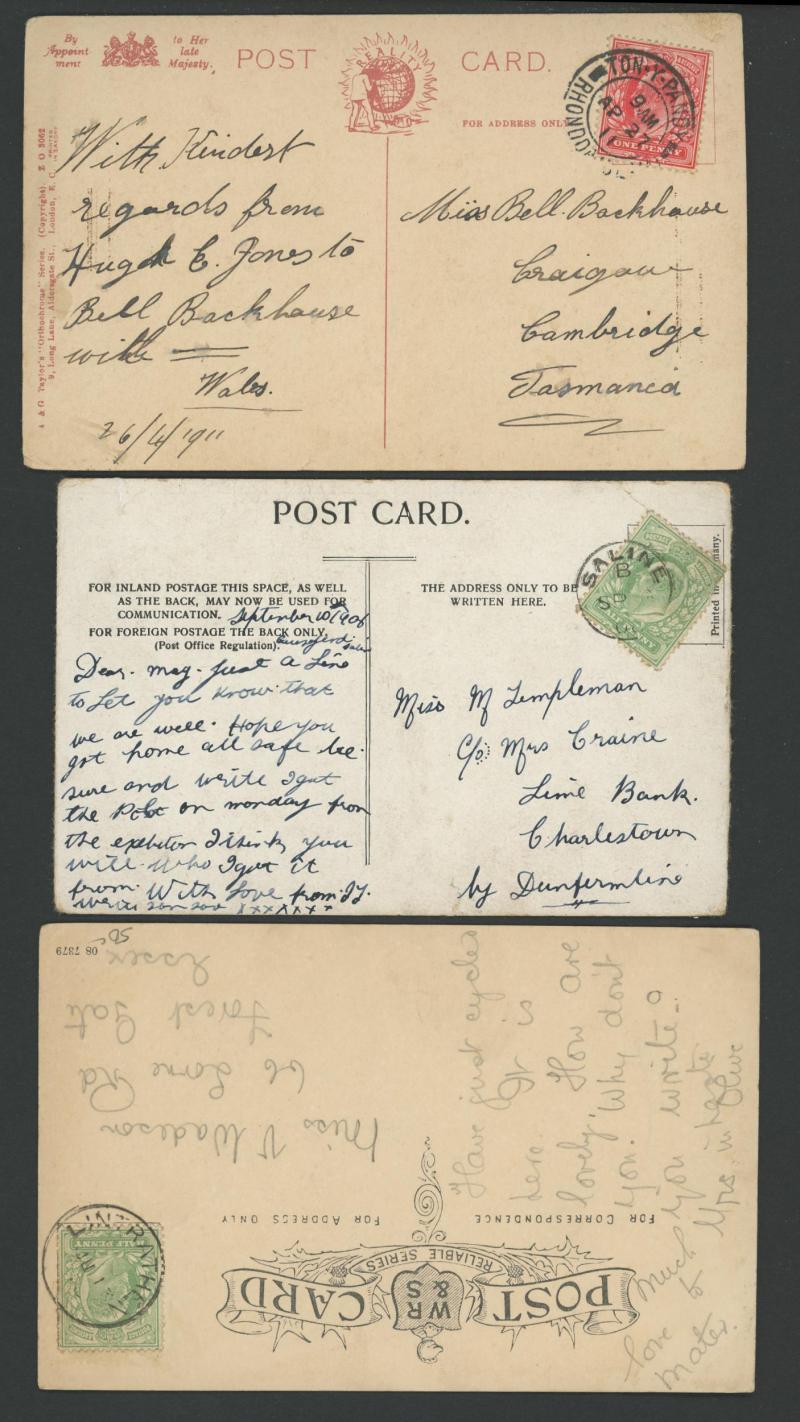 By Appointment
to Her late Majesty.
POST CARD.
REALITY
FOR ADDRESS ONLY
A & G Taylor's "Orthochrome" Series. (Copyright). Z O 3062
9, Long Lane, Aldersgate St., London, E.C.
TON-Y-PANDY
9 AM
AP 27
11
RHONDDA
ONE PENNY
With Kindest
regards from
Hugh E. Jones to
Bell Backhouse
with
Wales.
26/4/1911
Miss Bell. Backhouse
Craigow
Cambridge
Tasmania
POST CARD.
FOR INLAND POSTAGE THIS SPACE, AS WELL
AS THE BACK, MAY NOW BE USED FOR
COMMUNICATION.
FOR FOREIGN POSTAGE THE BACK ONLY.
(Post Office Regulation).
THE ADDRESS ONLY TO BE
WRITTEN HERE.
Printed in
SALINE
B
September 10th 1906
Dear. may. just a Line
to Let you know that
we are well. Hope you
got home all safe be.
sure and write I got
the on monday from
the I think you
will. who I got it
from. With Love from
write xxxxxxx
Miss M Templeman
c/o Mrs Craine
Lime Bank.
Charlestown
by Dunfermline
POST CARD
WR & S
RELIABLE SERIES
FOR CORRESPONDENCE
FOR ADDRESS ONLY
LINTRATHEN
HALF PENNY
Miss V. Wadeson
66 Lorne Rd
Forest Gate
Essex
08 7379
Have just cycled
here. It is
lovely. How are
you. Why don't
you write
much love
to Mater.
Yrs in haste
Olive